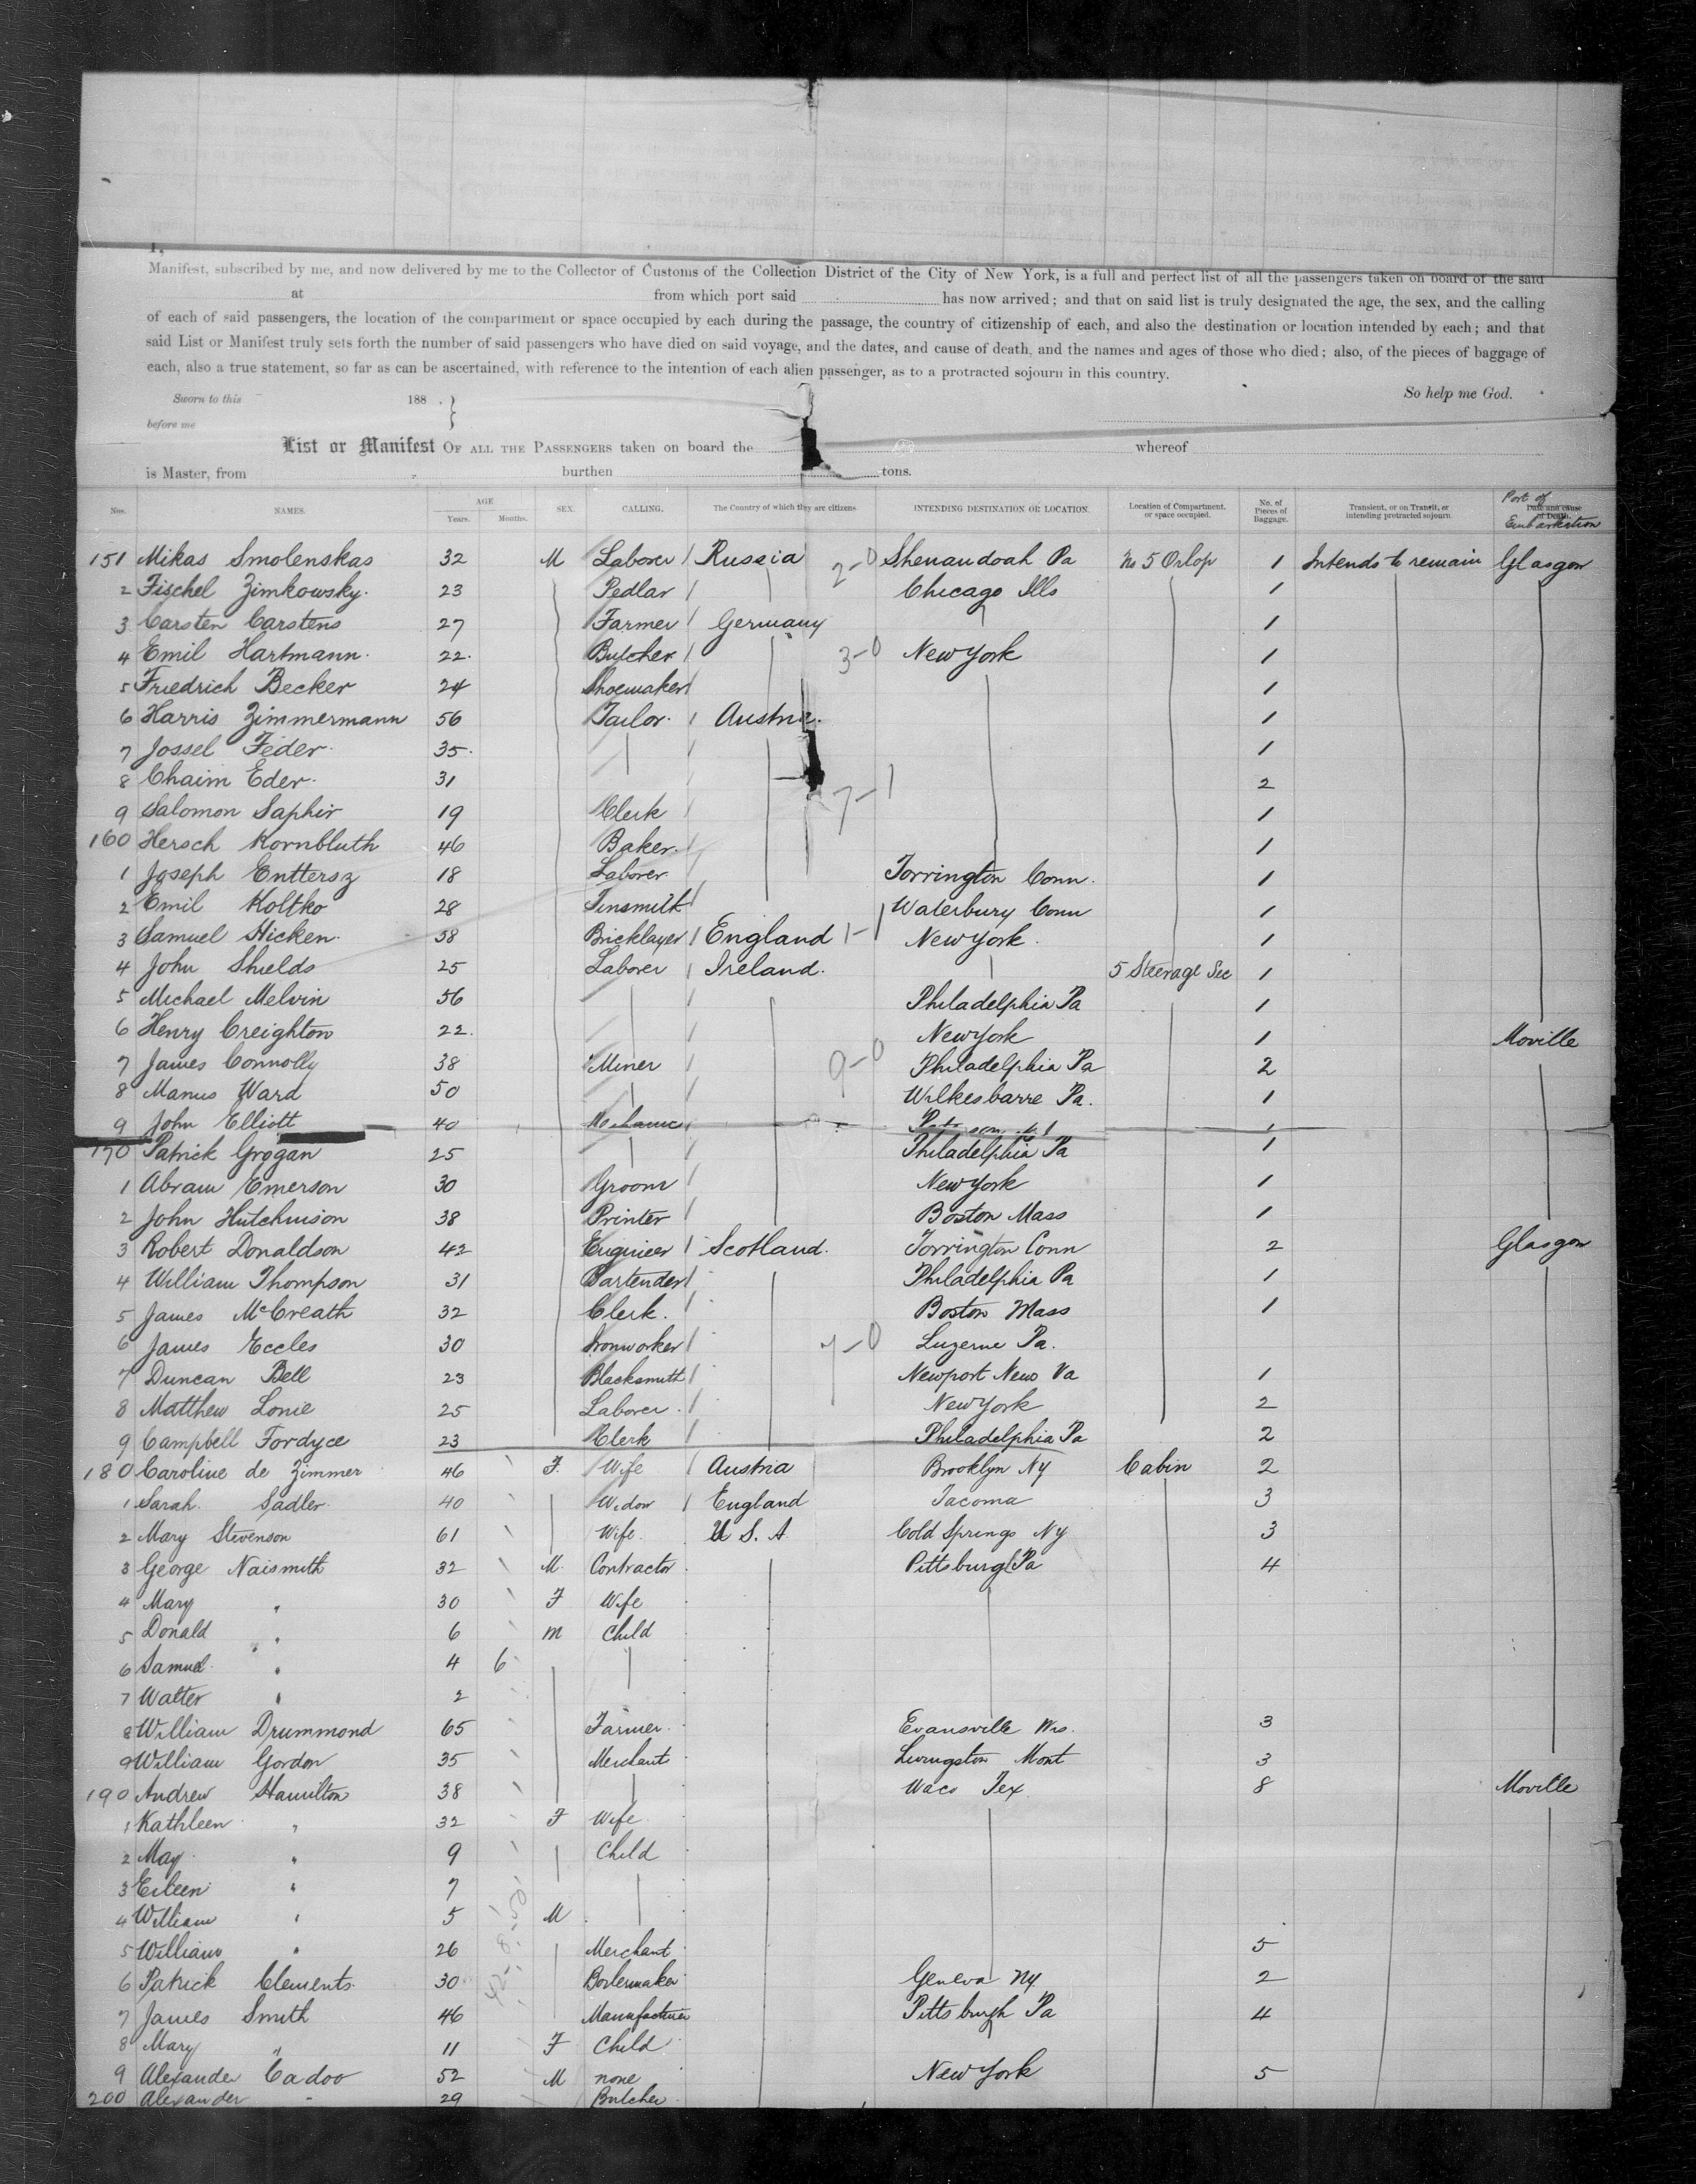 1,
Manifest, subscribed by me, and now delivered by me to the Collector of Customs of the Collection District of the City of New York, is a full and perfect list of all the passengers taken on board of the said
at from which port said has now arrived; and that on said list is truly designated the age, the sex, and the calling
of each of said passengers, the location of the compartment or space occupied by each during the passage, the country of citizenship of each, and also the destination or location intended by each; and that
said List or Manifest truly sets forth the number of said passengers who have died on said voyage, and the dates, and cause of death, and the names and ages of those who died; also, of the pieces of baggage of
each, also a true statement, so far as can be ascertained, with reference to the intention of each alien passenger, as to a protracted sojourn in this country.
So help me God.
Sworn to this 188 . }
before me
List or Manifest OF ALL THE PASSENGERS taken on board the whereof
is Master, from burthen tons.
Nos. NAMES. AGE Years. Months. SEX. CALLING. The Country of which they are citizens. INTENDING DESTINATION OR LOCATION. Location of Compartment, or space occupied. No. of Pieces of Baggage. Transient, or on Transit, or intending protracted sojourn. Date and cause of Death. Port of Embarkation
151 Mikas Smolenskas 32 M Laborer Russia 2-0 Shenandoah Pa No 5 Orlop 1 Intends to remain Glasgow
2 Fischel Zimkowsky 23 Pedlar Chicago Ills 1
3 Carsten Carstens 27 Farmer Germany 1
4 Emil Hartmann 22 Butcher 3-0 New York 1
5 Friedrich Becker 24 Shoemaker 1
6 Harris Zimmermann 56 Tailor Austria 1
7 Jossel Feder 35 1
8 Chaim Eder 31 2
9 Salomon Saphir 19 Clerk 7-1 1
160 Hersch Kornbluth 46 Baker 1
1 Joseph Enttersz 18 Laborer Torrington Conn 1
2 Emil Koltko 28 Tinsmith Waterbury Conn 1
3 Samuel Hicken 38 Bricklayer England 1-1 New York 1
4 John Shields 25 Laborer Ireland 5 Steerage Sec 1
5 Michael Melvin 56 Philadelphia Pa 1
6 Henry Creighton 22 New York 1 Moville
7 James Connolly 38 Miner 9-0 Philadelphia Pa 2
8 Manus Ward 50 Wilkesbarre Pa. 1
9 John Elliott 40 Mechanic 1
170 Patrick Grogan 25 Philadelphia Pa 1
1 Abram Emerson 30 Groom New York 1
2 John Hutchinson 38 Printer Boston Mass 1
3 Robert Donaldson 42 Engineer Scotland Torrington Conn 2 Glasgow
4 William Thompson 31 Bartender Philadelphia Pa 1
5 James McCreath 32 Clerk Boston Mass 1
6 James Eccles 30 Ironworker 7-0 Luzerne Pa.
7 Duncan Bell 23 Blacksmith Newport News Va 1
8 Matthew Lonie 25 Laborer New York 2
9 Campbell Fordyce 23 Clerk Philadelphia Pa 2
180 Caroline de Zimmer 46 F. Wife Austria Brooklyn NY Cabin 2
1 Sarah Sadler 40 Widow England Tacoma 3
2 Mary Stevenson 61 Wife U S. A Cold Springs NY 3
3 George Naismith 32 M. Contractor Pittsburg Pa 4
4 Mary " 30 F Wife
5 Donald " 6 M Child
6 Samuel " 4 6
7 Walter " 2
8 William Drummond 65 Farmer Evansville Wis. 3
9 William Gordon 35 Merchant Livingston Mont 3
190 Andrew Hamilton 38 Waco Tex 8 Moville
1 Kathleen " 32 F Wife
2 May " 9 Child
3 Eileen " 7
4 William " 5 M
5 William " 26 Merchant 5
6 Patrick Clements 30 Boilermaker Geneva NY 2
7 James Smith 46 Manufacturer Pittsburgh Pa 4
8 Mary " 11 F Child
9 Alexander Cadoo 52 M none New York 5
200 Alexander " 29 Butcher